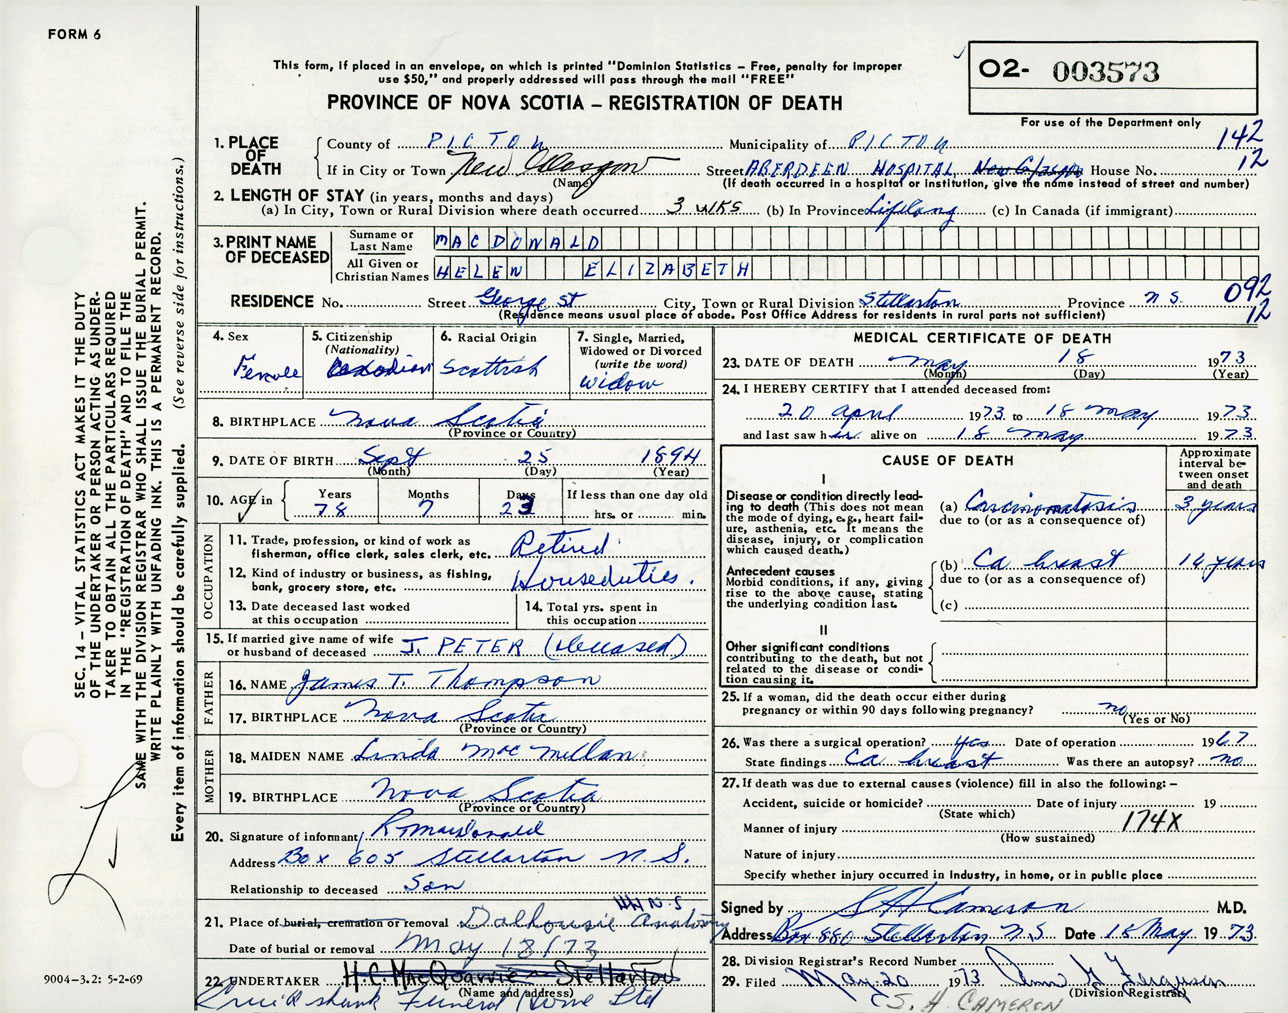 FORM 6
This form, if placed in an envelope, on which is printed "Dominion Statistics – Free, penalty for improper
use $50," and properly addressed will pass through the mail "FREE"
PROVINCE OF NOVA SCOTIA – REGISTRATION OF DEATH
02- 003573
For use of the Department only
142
12
1. PLACE OF DEATH
County of PICTOU Municipality of PICTOU
If in City or Town New Glasgow Street ABERDEEN HOSPITAL, New Glasgow House No.
(Name) (If death occurred in a hospital or institution, give the name instead of street and number)
2. LENGTH OF STAY (in years, months and days)
(a) In City, Town or Rural Division where death occurred 3 wks (b) In Province Lifelong (c) In Canada (if immigrant)
3. PRINT NAME OF DECEASED
Surname or Last Name MACDONALD
All Given or Christian Names HELEN ELIZABETH
RESIDENCE No. Street George St City, Town or Rural Division Stellarton Province N.S.
(Residence means usual place of abode. Post Office Address for residents in rural parts not sufficient)
092
12
4. Sex
Female
5. Citizenship
(Nationality)
Canadian
6. Racial Origin
Scottish
7. Single, Married,
Widowed or Divorced
(write the word)
Widow
8. BIRTHPLACE Nova Scotia
(Province or Country)
9. DATE OF BIRTH Sept 25 1894
(Month) (Day) (Year)
10. AGE in Years Months Days If less than one day old
78 7 23 hrs. or min.
OCCUPATION
11. Trade, profession, or kind of work as
fisherman, office clerk, sales clerk, etc. Retired
12. Kind of industry or business, as fishing,
bank, grocery store, etc. Houseduties.
13. Date deceased last worked
at this occupation
14. Total yrs. spent in
this occupation
15. If married give name of wife
or husband of deceased J. PETER (deceased)
FATHER
16. NAME James T. Thompson
17. BIRTHPLACE Nova Scotia
(Province or Country)
MOTHER
18. MAIDEN NAME Linda MacMillan
19. BIRTHPLACE Nova Scotia
(Province or Country)
20. Signature of informant R MacDonald
Address Box 605 Stellarton N.S.
Relationship to deceased Son
21. Place of burial, cremation or removal Dalhousie Anatomy
Date of burial or removal May 18/73
22. UNDERTAKER H.C. MacQuarrie – Stellarton
(Name and address)
Cruickshank Funeral Home Ltd
MEDICAL CERTIFICATE OF DEATH
23. DATE OF DEATH May 18 1973
(Month) (Day) (Year)
24. I HEREBY CERTIFY that I attended deceased from:
20 April 1973 to 18 May 1973
and last saw her alive on 18 May 1973
CAUSE OF DEATH
Approximate
interval be-
tween onset
and death
I
Disease or condition directly lead-
ing to death (This does not mean
the mode of dying, e.g., heart fail-
ure, asthenia, etc. It means the
disease, injury, or complication
which caused death.)
(a) Carcinomatosis 3 years
due to (or as a consequence of)
Antecedent causes
Morbid conditions, if any, giving
rise to the above cause, stating
the underlying condition last.
(b) Ca breast 14 years
due to (or as a consequence of)
(c)
II
Other significant conditions
contributing to the death, but not
related to the disease or condi-
tion causing it.
25. If a woman, did the death occur either during
pregnancy or within 90 days following pregnancy? no
(Yes or No)
26. Was there a surgical operation? yes Date of operation 1967
State findings Ca breast Was there an autopsy? no
27. If death was due to external causes (violence) fill in also the following: –
Accident, suicide or homicide? Date of injury 19
(State which)
Manner of injury 174X
(How sustained)
Nature of injury
Specify whether injury occurred in industry, in home, or in public place
Signed by S A Cameron M.D.
Address Box 880 Stellarton N.S. Date 18 May 1973
28. Division Registrar's Record Number
29. Filed May 20 1973 Ann G Ferguson
(Division Registrar)
S. A. CAMERON
SEC. 14 – VITAL STATISTICS ACT MAKES IT THE DUTY
OF THE UNDERTAKER OR PERSON ACTING AS UNDER-
TAKER TO OBTAIN ALL THE PARTICULARS REQUIRED
IN THE "REGISTRATION OF DEATH" AND TO FILE THE
SAME WITH THE DIVISION REGISTRAR WHO SHALL ISSUE THE BURIAL PERMIT.
WRITE PLAINLY WITH UNFADING INK. THIS IS A PERMANENT RECORD.
Every item of information should be carefully supplied. (See reverse side for instructions.)
9004-3.2: 5-2-69